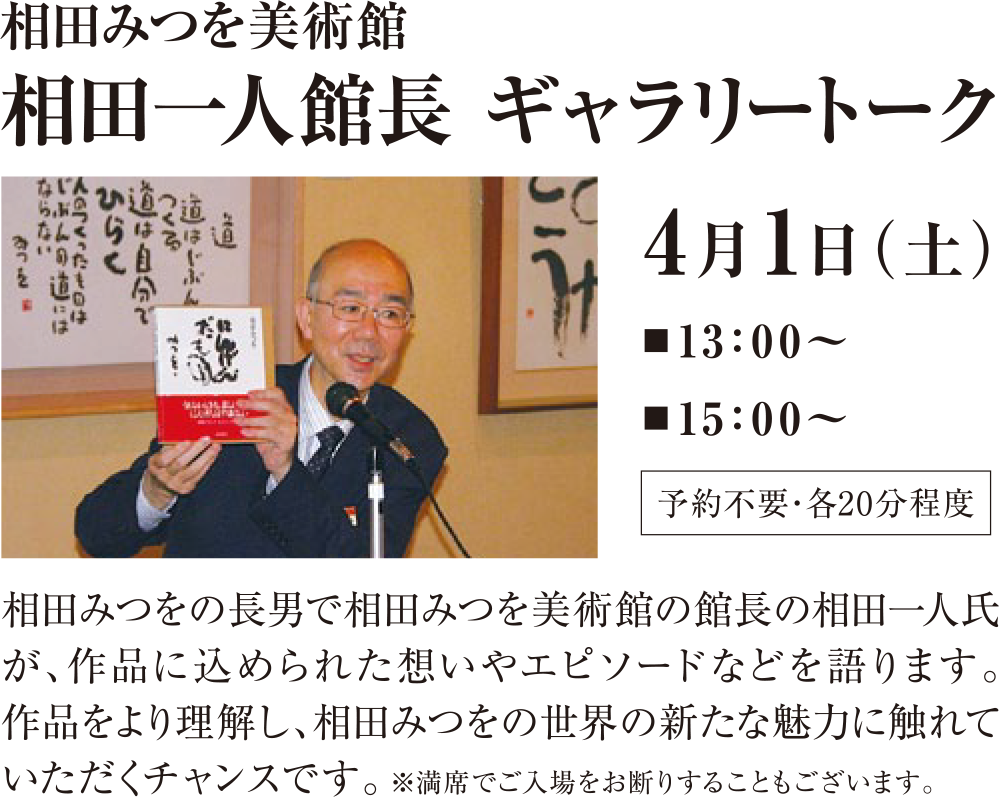 相田みつを美術館
相田一人館長 ギャラリートーク
道
道はじぶんで
つくる
道は自分で
ひらく
人のつくったものは
じぶんの道には
ならない
みつを
にんげん
だもの
みつを
4月1日(土)
■13:00〜
■15:00〜
予約不要・各20分程度
相田みつをの長男で相田みつを美術館の館長の相田一人氏
が、作品に込められた想いやエピソードなどを語ります。
作品をより理解し、相田みつをの世界の新たな魅力に触れて
いただくチャンスです。※満席でご入場をお断りすることもございます。